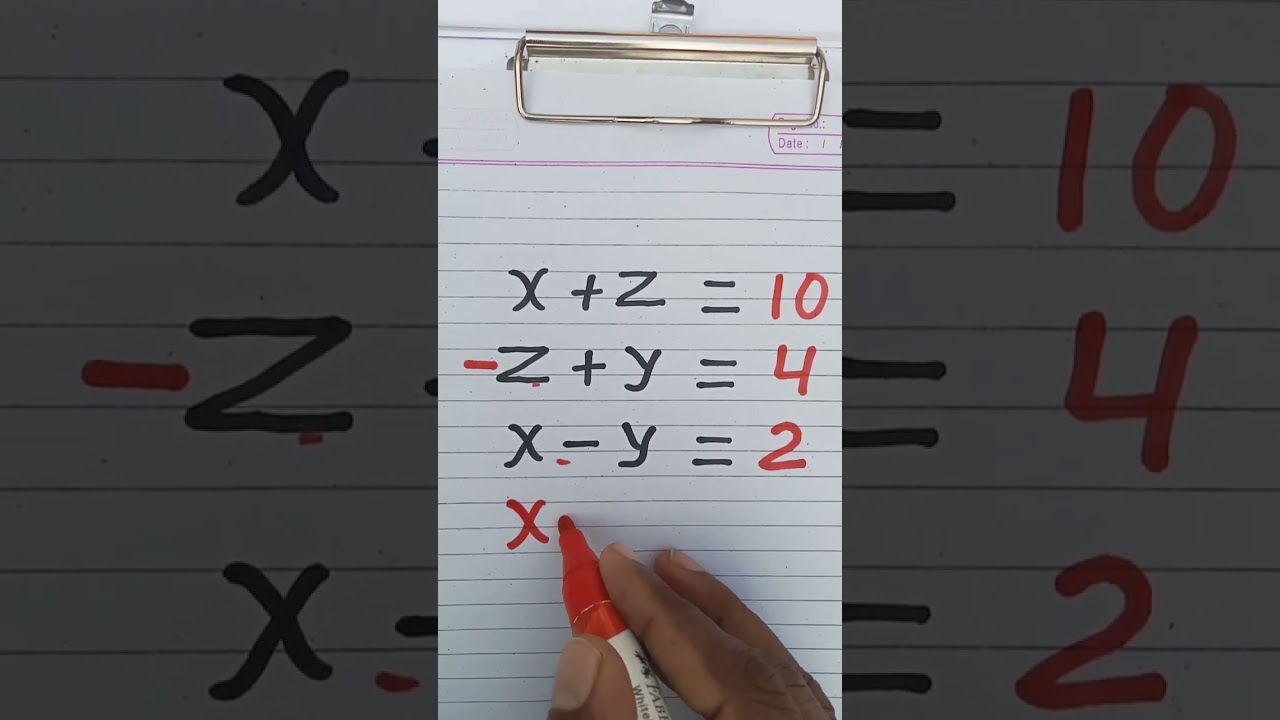 Date : / /
x + z = 10
- z + y = 4
x - y = 2
x
White